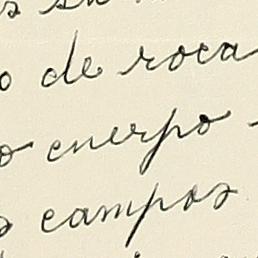 de roca
cuerpo
campos